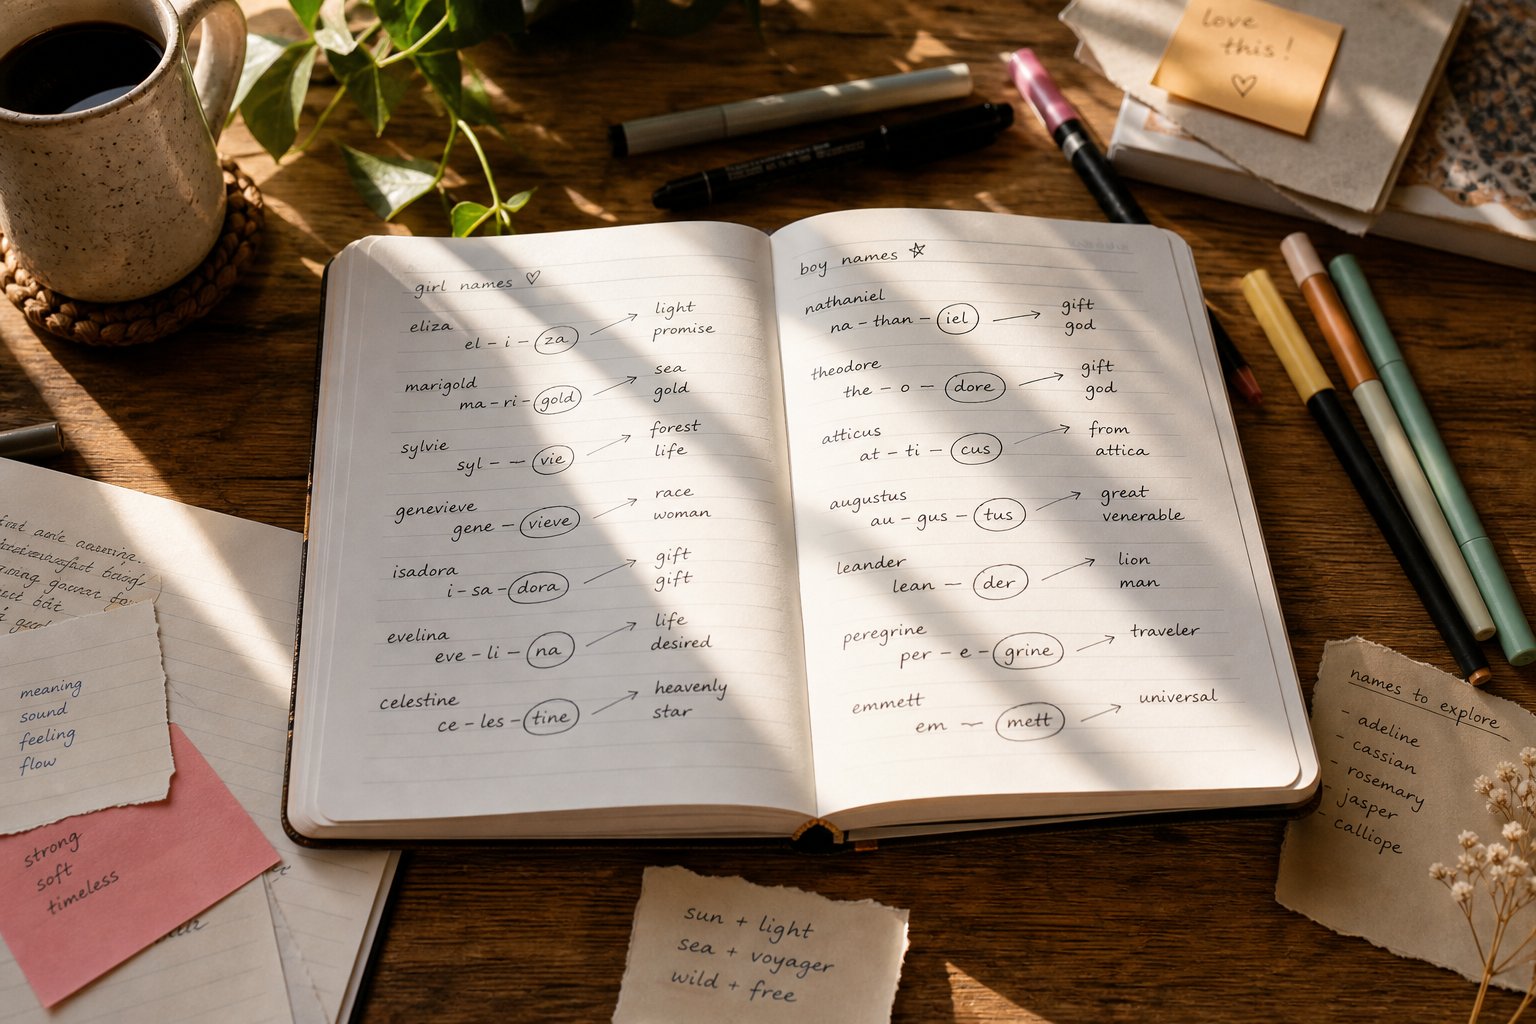 love
this!
girl names
eliza
el - i - za
light
promise
marigold
ma - ri - gold
sea
gold
sylvie
syl - - vie
forest
life
genevieve
gene - vieve
race
woman
isadora
i - sa - dora
gift
gift
evelina
eve - li - na
life
desired
celestine
ce - les - tine
heavenly
star
boy names
nathaniel
na - than - iel
gift
god
theodore
the - o - dore
gift
god
atticus
at - ti - cus
from
attica
augustus
au - gus - tus
great
venerable
leander
lean - der
lion
man
peregrine
per - e - grine
traveler
emmett
em - mett
universal
meaning
sound
feeling
flow
strong
soft
timeless
sun + light
sea + voyager
wild + free
names to explore
- adeline
- cassian
- rosemary
- jasper
- calliope